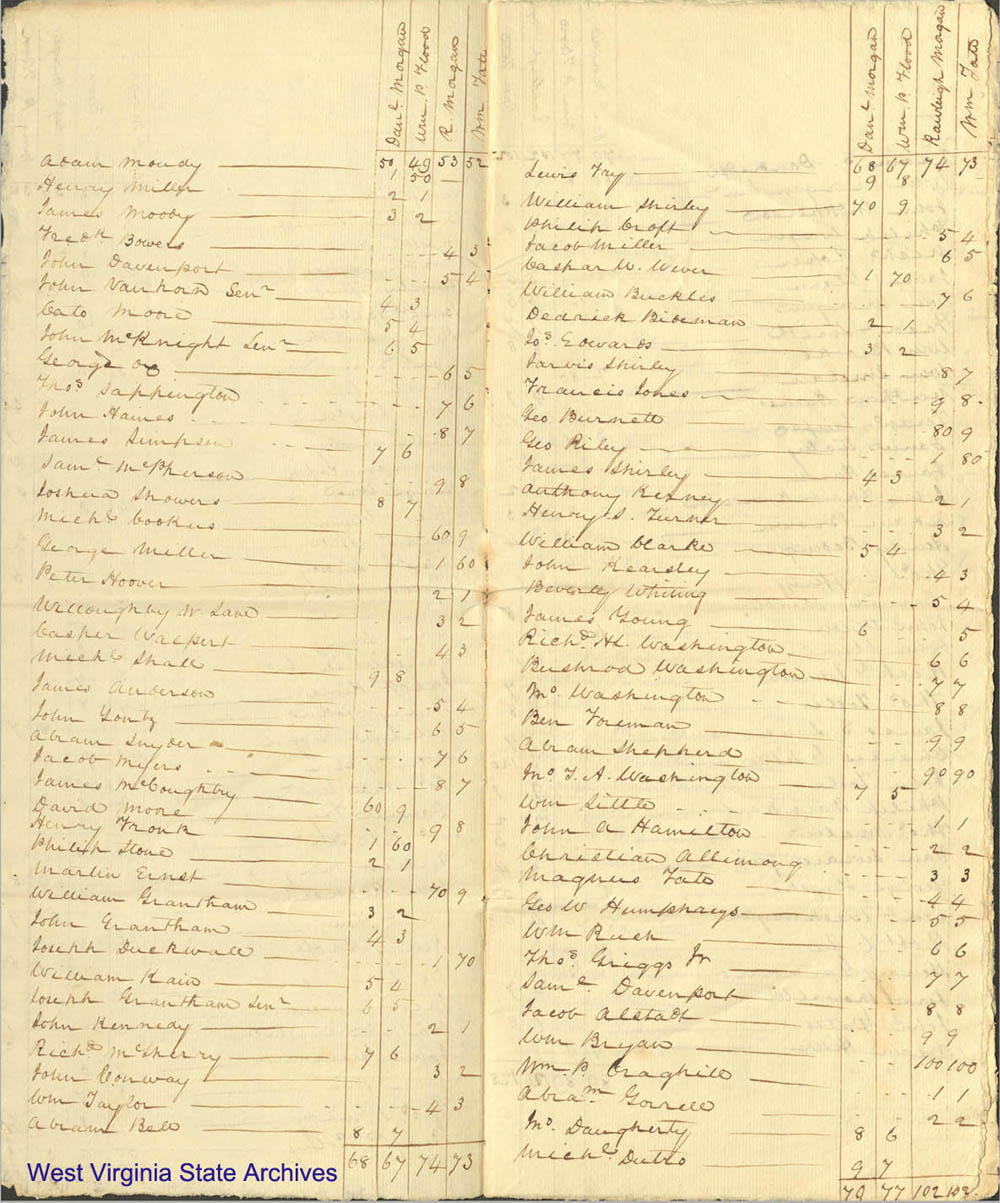 Danl Morgan Wm P Flood R. Morgan Wm Tate
50 49 53 52
Adam Moudy 1 50
Henry Miller 2 1
James Moody 3 2
Fredk Bowers 4 3
John Davenport 5 4
John Vanhorn Senr 4 3
Cato Moore 5 4
John McKnight Senr 6 5
George 6 5
Thos Sappington 7 6
John Haines 8 7
James Simpson 7 6
Saml McPherson 9 8
Joshua Showers 8 7
Michl Cookus 60 9
George Miller 1 60
Peter Hoover 2 1
Willoughby W. Lane 3 2
Casper Walpert 4 3
Michl Shall 9 8
James Anderson 5 4
John Yontz 6 5
Abram Snyder 7 6
Jacob Myers 8 7
James McCoughtry 60 9
David Moore 9 8
Henry Fronk 1 60
Philip Stone 2 1
Martin Ernst 70 9
William Grantham 3 2
John Grantham 4 3
Joseph Duckwall 1 70
William Kain 5 4
Joseph Grantham Senr 6 5
John Kennedy 2 1
Richd McSherry 7 6
John Conway 3 2
Wm Taylor 4 3
Abram Bell 8 7
68 67 74 73
West Virginia State Archives
Danl Morgan Wm P Flood Rawleigh Morgan Wm Tate
68 67 74 73
Lewis Fry 9 8
William Shirley 70 9
Philip Croft 5 4
Jacob Miller 6 5
Caspar W. Wever 1 70
William Buckles 7 6
Dedrick Bideman 2 1
Jos Edwards 3 2
Jarvis Shirley 8 7
Francis Jones 9 8
Geo Burnett 80 9
Geo Riley 1 80
James Shirley 4 3
Anthony Kerney 2 1
Henry S. Turner 3 2
William Clarke 5 4
John Kearsley 4 3
Beverly Whiting 5 4
James Young 6 5
Richd H L Washington 6 6
Bushrod Washington 7 7
Jno Washington 8 8
Ben Foreman 9 9
Abram Shepherd 90 90
Jno T. A. Washington 7 5
Wm Little 1 1
John A Hamilton 2 2
Christian Allimong 3 3
Magnus Tate 4 4
Geo W Humphreys 5 5
Wm Ruch 6 6
Thos Griggs Jr 7 7
Saml Davenport 8 8
Jacob Alstadt 9 9
Wm Bryan 100 100
Wm P. Craghill 1 1
Abram Gorrell 2 2
Jno Daugherty 8 6
Michl Dutro 9 7
79 77 102 102